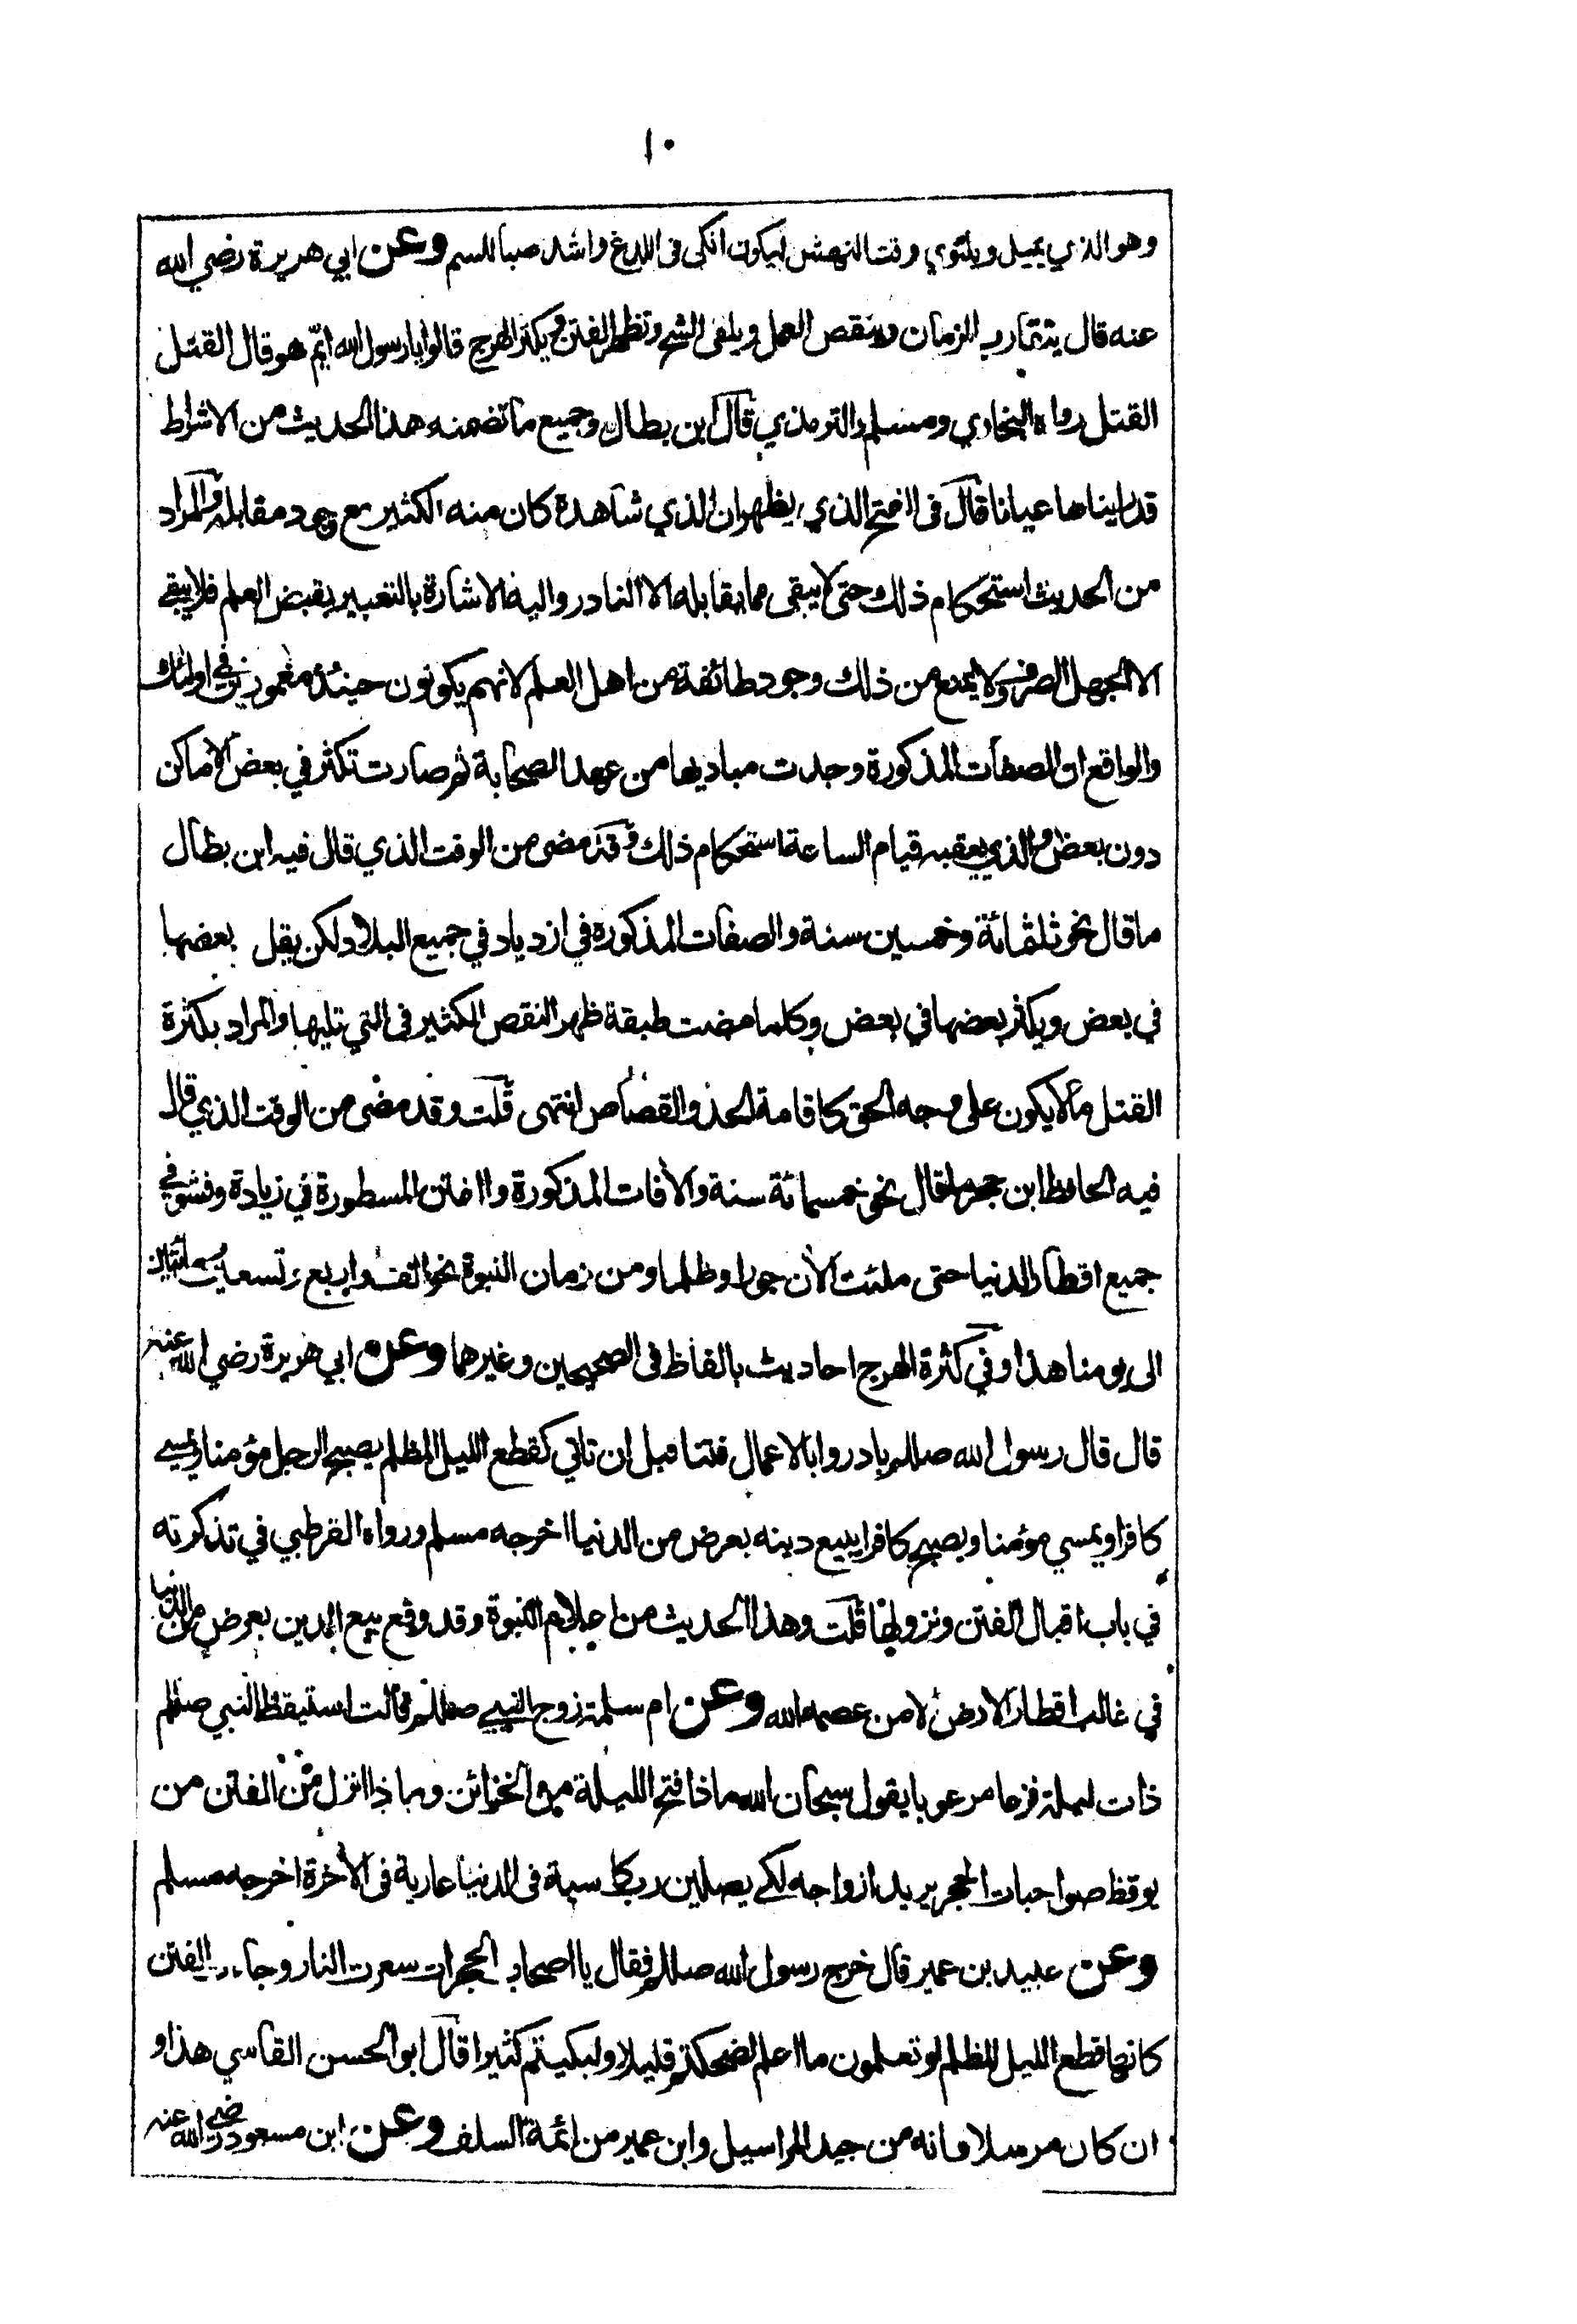 ١٠
وهو الذي يميل ويلتوي وقت النهش ليكون انكى فى اللدغ واشد صبا للسم وعن ابي هريرة رضي الله
عنه قال يتقارب الزمان وينقص العمل ويلقى الشح وتظهر الفتن ويكثر الهرج قالوا يا رسول الله ايّم هو قال القتل
القتل رواه البخاري ومسلم والترمذي قال ابن بطال وجميع ما تضمنه هذا الحديث من الاشراط
قد رايناها عيانا قال فى الفتح الذي يظهر ان الذي شاهده كان منه الكثير مع وجود مقابله والمراد
من الحديث استحكام ذلك حتى لا يبقى مما يقابله الا النادر واليه الاشارة بالتعبير بقبض العلم فلا يبقى
الا الجهل الصرف ولا يمنع من ذلك وجود طائفة من اهل العلم لانهم يكونون حينئذ مغمورين في اولئك
والواقع ان الصفات المذكورة وجدت مباديها من عهد الصحابة ثم صارت تكثر في بعض الاماكن
دون بعض والذي يعقبه قيام الساعة استحكام ذلك وقد مضى من الوقت الذي قال فيه ابن بطال
ما قال نحو ثلثمائة وخمسين سنة والصفات المذكورة في ازدياد في جميع البلاد لكن يقل بعضها
في بعض ويكثر بعضها في بعض وكلما مضت طبقة ظهر النقص الكثير فى التي تليها والمراد بكثرة
القتل ما لا يكون على وجه الحق كاقامة الحد والقصاص انتهى قلت وقد مضى من الوقت الذي قال
فيه الحافظ ابن حجر ما قال نحو خمسمائة سنة والآفات المذكورة والفتن المسطورة في زيادة وفشو في
جميع اقطار الدنيا حتى ملئت الآن جورا وظلما ومن زمان النبوة نحو الف واربع وتسعين ومائتين
الى يومنا هذا وفي كثرة الهرج احاديث بالفاظ فى الصحيحين وغيرهما وعن ابي هريرة رضي الله عنه
قال قال رسول الله صللم بادروا بالاعمال فتنا قبل ان تاتي كقطع الليل المظلم يصبح الرجل مؤمنا ويمسي
كافرا ويمسي مؤمنا ويصبح كافرا يبيع دينه بعرض من الدنيا اخرجه مسلم ورواه القرطبي في تذكرته
في باب اقبال الفتن ونزولها قلت وهذا الحديث من اعلام النبوة وقد وقع بيع الدين بعرض من الدنيا
في غالب اقطار الارض الا من عصمه الله وعن ام سلمة زوج النبي صللم قالت استيقظ النبي صللم
ذات ليلة فزعا مرعوبا يقول سبحان الله ماذا فتح الليلة من الخزائن وماذا انزل من الفتن من
يوقظ صواحبات الحجر يريد ازواجه لكي يصلين رب كاسية فى الدنيا عارية فى الآخرة اخرجه مسلم
وعن عبيد بن عمير قال خرج رسول الله صللم فقال يا اصحاب الحجرات سعرت النار وجاءت الفتن
كانها قطع الليل المظلم لو تعلمون ما اعلم لضحكتم قليلا ولبكيتم كثيرا قال ابو الحسن القابسي هذا و
ان كان مرسلا فانه من جيد المراسيل وابن عمير من ائمة السلف وعن ابن مسعود رضي الله عنه